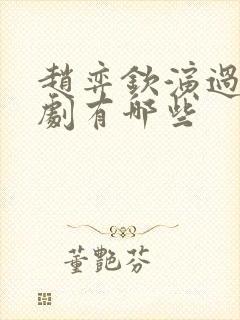 趙弈欽演過
劇有哪些
董艷芬